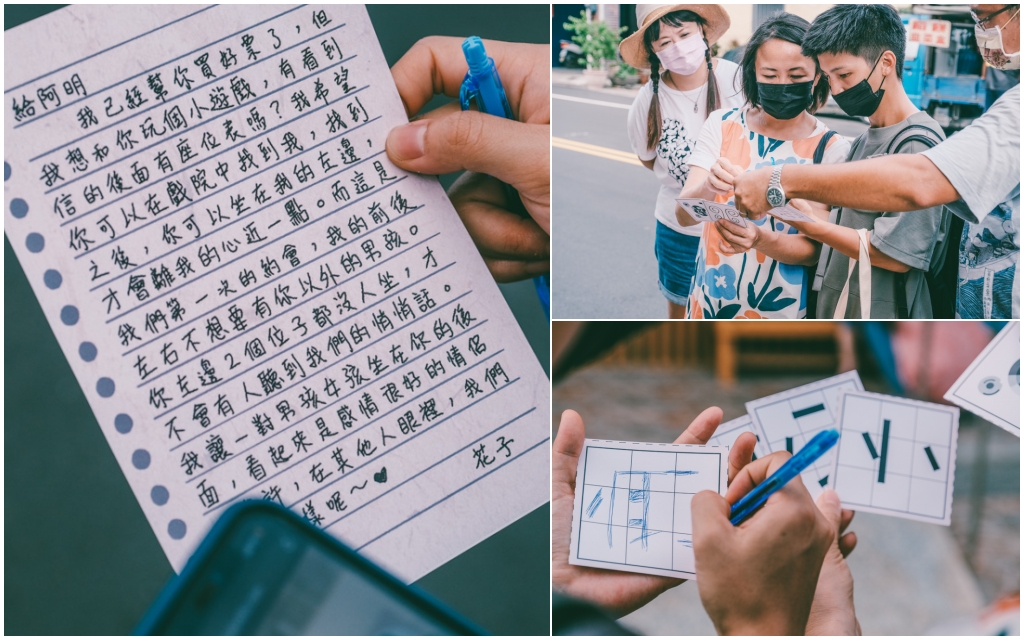 給阿明
我已經幫你買好票了，但
我想和你玩個小遊戲，有看到
信的後面有座位表嗎？我希望
你可以在戲院中找到我，找到
之後，你可以坐在我的左邊，
才會離我的心近一點。而這是
我們第一次的約會，我的前後
左右不想要有你以外的男孩。
你左邊2個位子都沒人坐，才
不會有人聽到我們的悄悄話。
我讓一對男孩女孩坐在你的後
面，看起來是感情很好的情侶
許，在其他人眼裡，我們
樣呢～♥
花子